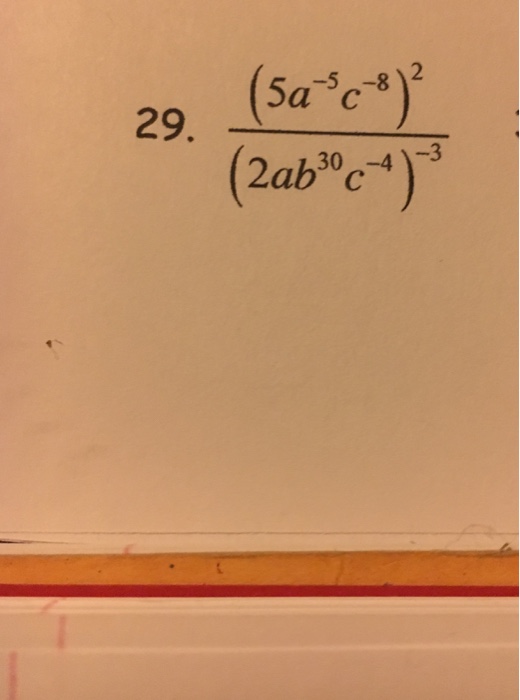 29. \frac{(5a^{-5}c^{-8})^{2}}{(2ab^{30}c^{-4})^{-3}}